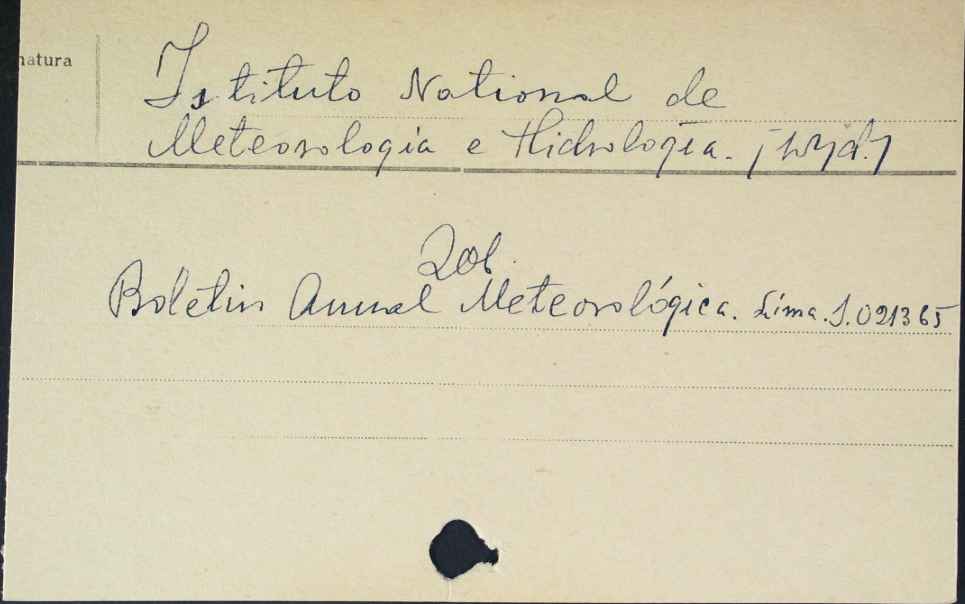 natura
Istituto National de
Meteorologia e Hidrologia. / wyd. /
Zob.
Boletin Annual Meteorológica. Lima. S. 021365